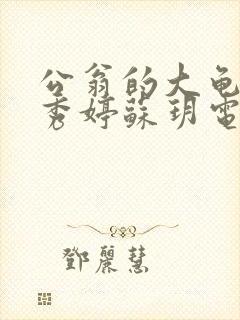 公翁的大龟
秀婷蘇玥電
鄧麗慧